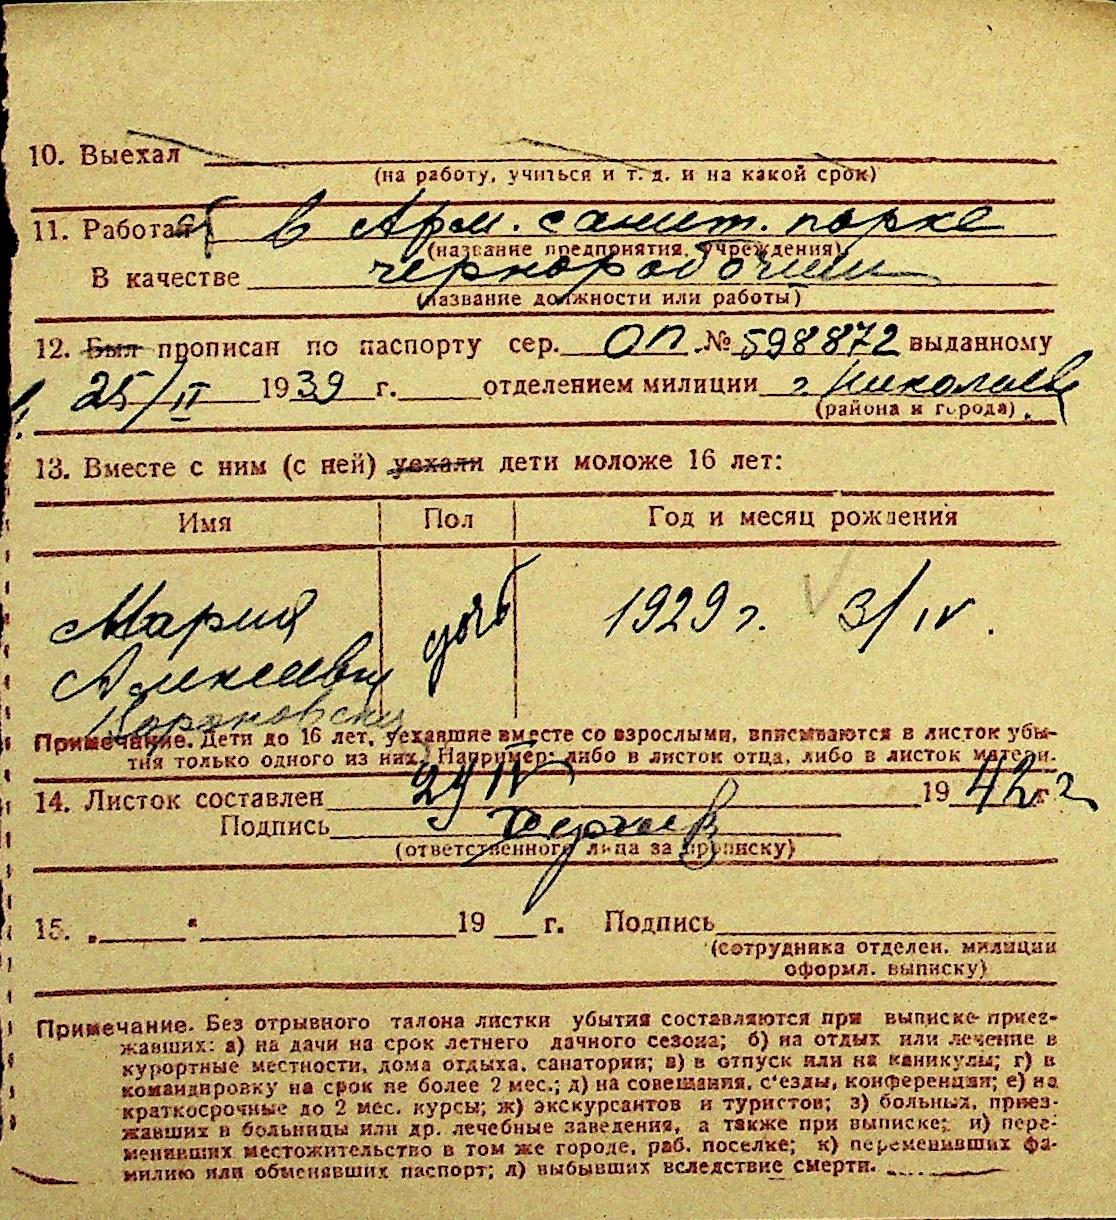 10. Выехал
(на работу, учиться и т. д. и на какой срок)
11. Работает в Арм. санит. парке
(название предприятия, учреждения)
В качестве чернорабочий
(название должности или работы)
12. Был прописан по паспорту сер. ОП № 598872 выданному
25/II 1939 г. отделением милиции г. Николаев
(района и города)
13. Вместе с ним (с ней) уехали дети моложе 16 лет:
Имя Пол Год и месяц рождения
Мария дочь 1929 г. 3/IV.
Алексеевна
Примечание. Дети до 16 лет, уехавшие вместе со взрослыми, вписываются в листок убы-
тия только одного из них. Например: либо в листок отца, либо в листок матери.
14. Листок составлен 29 IV 1942 г
Подпись
(ответственного лица за прописку)
15. „ “ 19 г. Подпись
(сотрудника отделен. милиции
оформл. выписку)
Примечание. Без отрывного талона листки убытия составляются при выписке приез-
жавших: а) на дачи на срок летнего дачного сезона; б) на отдых или лечение в
курортные местности, дома отдыха, санатории; в) в отпуск или на каникулы; г) в
командировку на срок не более 2 мес.; д) на совещания, с'езды, конференции; е) на
краткосрочные до 2 мес. курсы; ж) экскурсантов и туристов; з) больных, приез-
жавших в больницы или др. лечебные заведения, а также при выписке: и) пере-
менивших местожительство в том же городе, раб. поселке; к) переменивших фа-
милию или обменявших паспорт; л) выбывших вследствие смерти.